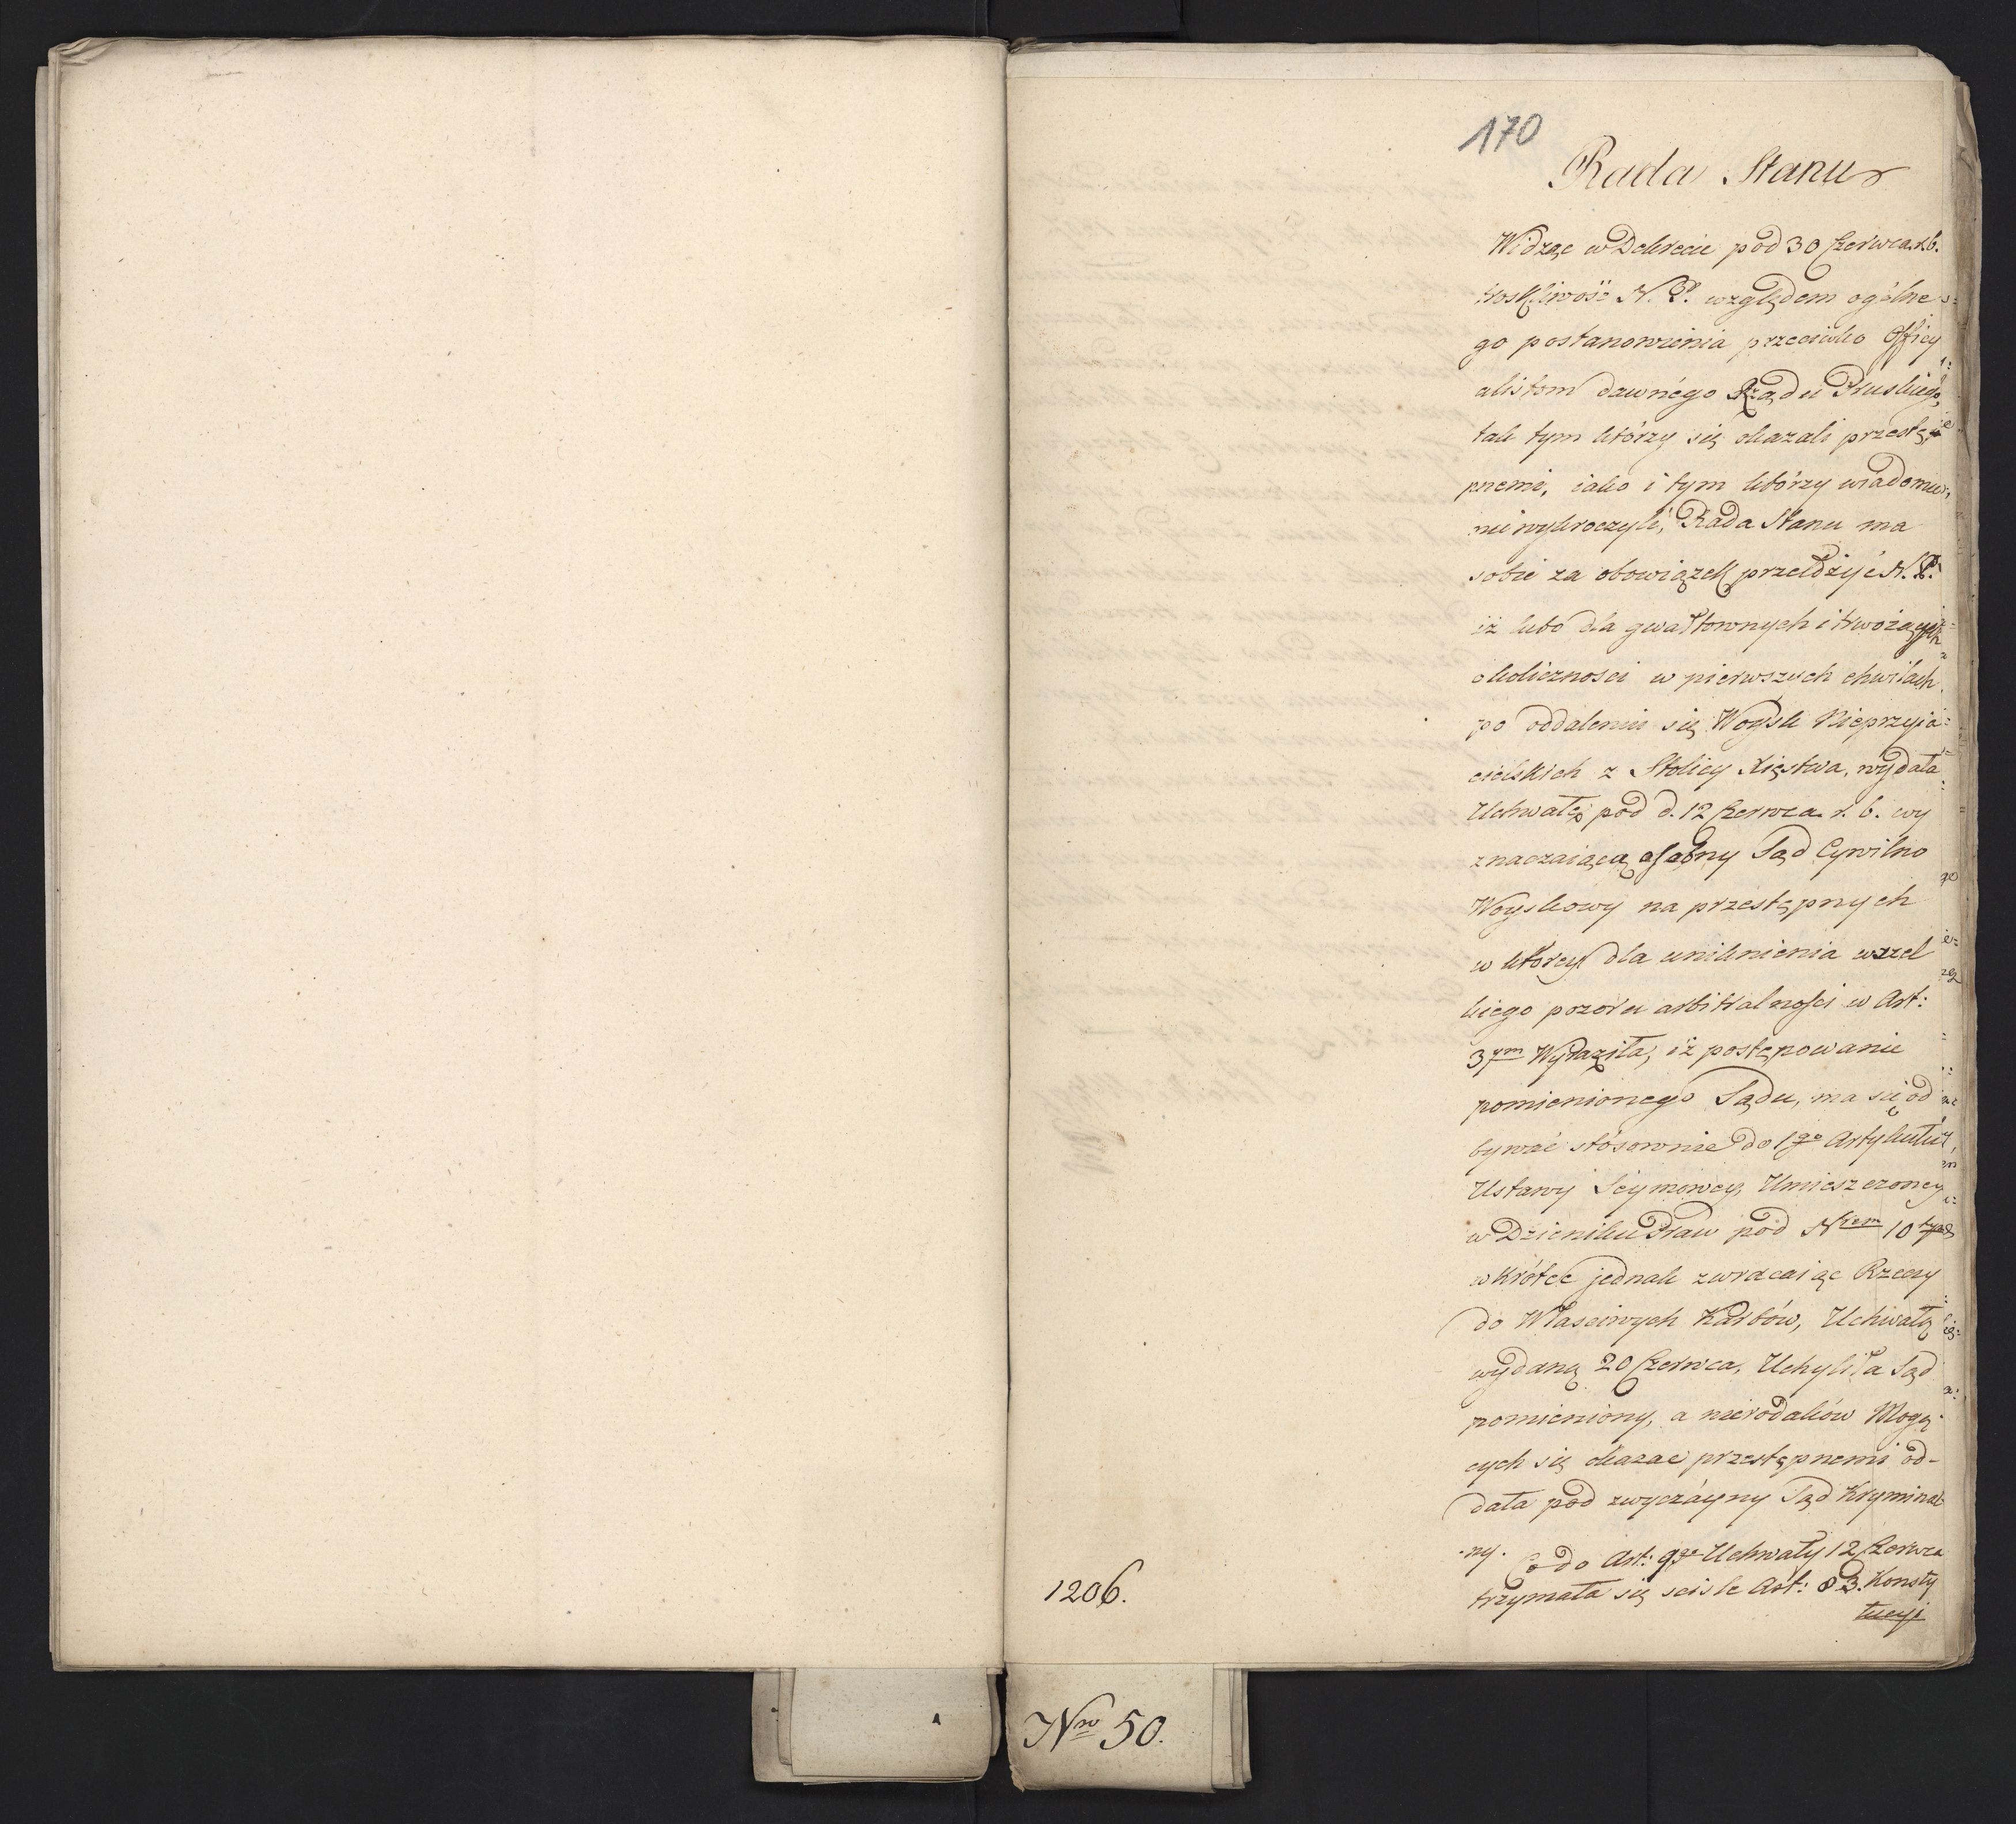 170
Rada Stanu
Widząc w Dekrecie pod 30 Czerwca r.b.
troskliwość N. P. względem ogólne
go postanowienia przeciwko Officy
alistom dawnégo Rządu Pruskiego,
tak tym którzy się okazali przestę
pnemi, iako i tym którzy wiadomie
nie wykroczyli, Rada Stanu ma
sobie za obowiązek przełożyć N. P.
iż lubo dla gwałtownych i trwożących
okoliczności w pierwszych chwilach
po oddaleniu się Woysk Nieprzyja=
cielskich z Stolicy Xięstwa, wydała
Uchwałę pod d. 12 Czerwca r. b. wy
znaczaiącą osobny Sąd Cywilno
Woyskowy na przestępnych
w którey dla uniknienia wszel
kiego pozoru arbitralności w Art:
3ym Wyraziła, iż postępowanie
pomienionego Sądu, ma się od
bywać stósownie do 1go Artykułu
Ustawy Seymowey, Umieszczoney
w Dzieniku Praw pod Nrem 10
wkrótce jednak zwracaiąc Rzeczy
do Własciwych Karbów, Uchwałą
wydaną 20 Czerwca, Uchyliła Sąd
pomieniony, a nierodaków Mogą
cych się okazać przestępnemi od-
dała pod zwyczáyny Sąd Kryminal
ny. Co do Art: 9go Uchwały 12 Czerwca
trzymała się scisle Art: 83. Konsty
tucyi
1206.
Nro 50.